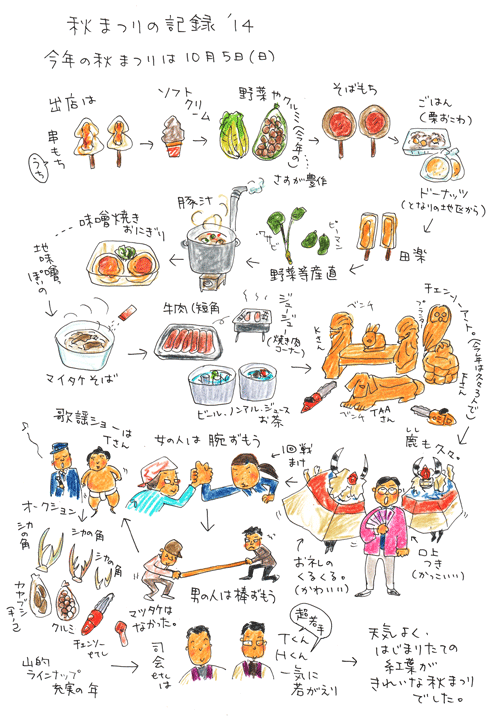 秋まつりの記録 '14
今年の秋まつりは10月5日(日)
出店は
串もち
(うち)
ソフト
クリーム
野菜やクルミ(今年の…
さすが豊作
そばもち
ごはん
(栗おこわ)
ドーナッツ
(となりの地区から)
田楽
ピーマン
ワサビ
野菜等産直
豚汁
味噌焼き
おにぎり
地味噌
ぽいの
マイタケそば
牛肉(短角
ジュー
ジュー
(焼き肉
コーナー)
ビール・ノンアル・ジュース
お茶
チェンソーアート。(今年は久々3人で)
ベンチ
Kさん
フクロウ
Fさん
ベンチ
TAA
さん
しし
鹿も久々。
口上
つき
(かっこいい)
お礼の
くるくる。
(かわいい)
1回戦
まけ
女の人は腕ずもう
男の人は棒ずもう
歌謡ショーは
Tさん
オークション
シカの角
シカの角
シカの角
カヤブシ
(キノコ)
クルミ
チェンソー
etc.
マツタケは
なかった。
山的
ラインナップ
充実の年
司会
etc.は
超若手
Tくん
Hくん
一気に
若がえり
天気よく、
はじまりたての
紅葉が
きれいな秋まつり
でした。